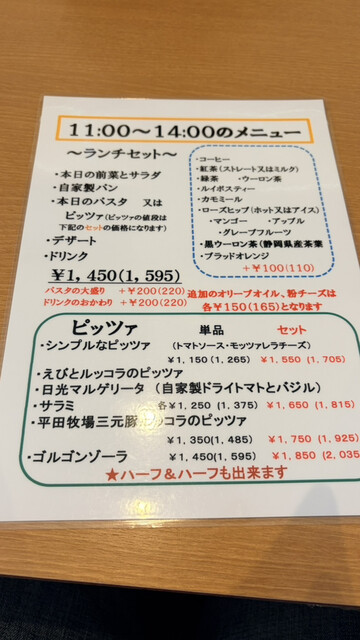 11:00～14:00のメニュー
～ランチセット～
・本日の前菜とサラダ
・自家製パン
・本日のパスタ　又は
ピッツァ(ピッツァの値段は
下記のセットの価格になります)
・デザート
・ドリンク
¥1,450(1,595)
パスタの大盛り　+¥200(220)
ドリンクのおかわり　+¥200(220)
・コーヒー
・紅茶(ストレート又はミルク)
・緑茶　・ウーロン茶
・ルイボスティー
・カモミール
・ローズヒップ(ホット又はアイス)
・マンゴー　・アップル
・グレープフルーツ
・黒ウーロン茶(静岡県産茶葉
・ブラッドオレンジ
+¥100(110)
追加のオリーブオイル、粉チーズは
各¥150(165)となります
ピッツァ　単品　セット
・シンプルなピッツァ　(トマトソース・モッツァレラチーズ)
¥1,150(1,265)　¥1,550(1,705)
・えびとルッコラのピッツァ
・日光マルゲリータ　(自家製ドライトマトとバジル)
・サラミ　各¥1,250(1,375)　¥1,650(1,815)
・平田牧場三元豚 ルッコラのピッツァ
¥1,350(1,485)　¥1,750(1,925)
・ゴルゴンゾーラ　¥1,450(1,595)　¥1,850(2,035
★ハーフ&ハーフも出来ます